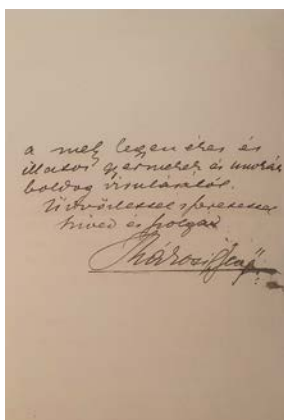 a mely legyen éles és
illatos gyermekek és unokák
boldog virulásától.
Üdvözlettel szeretettel
hived és szolgád
Rákosi Jenő